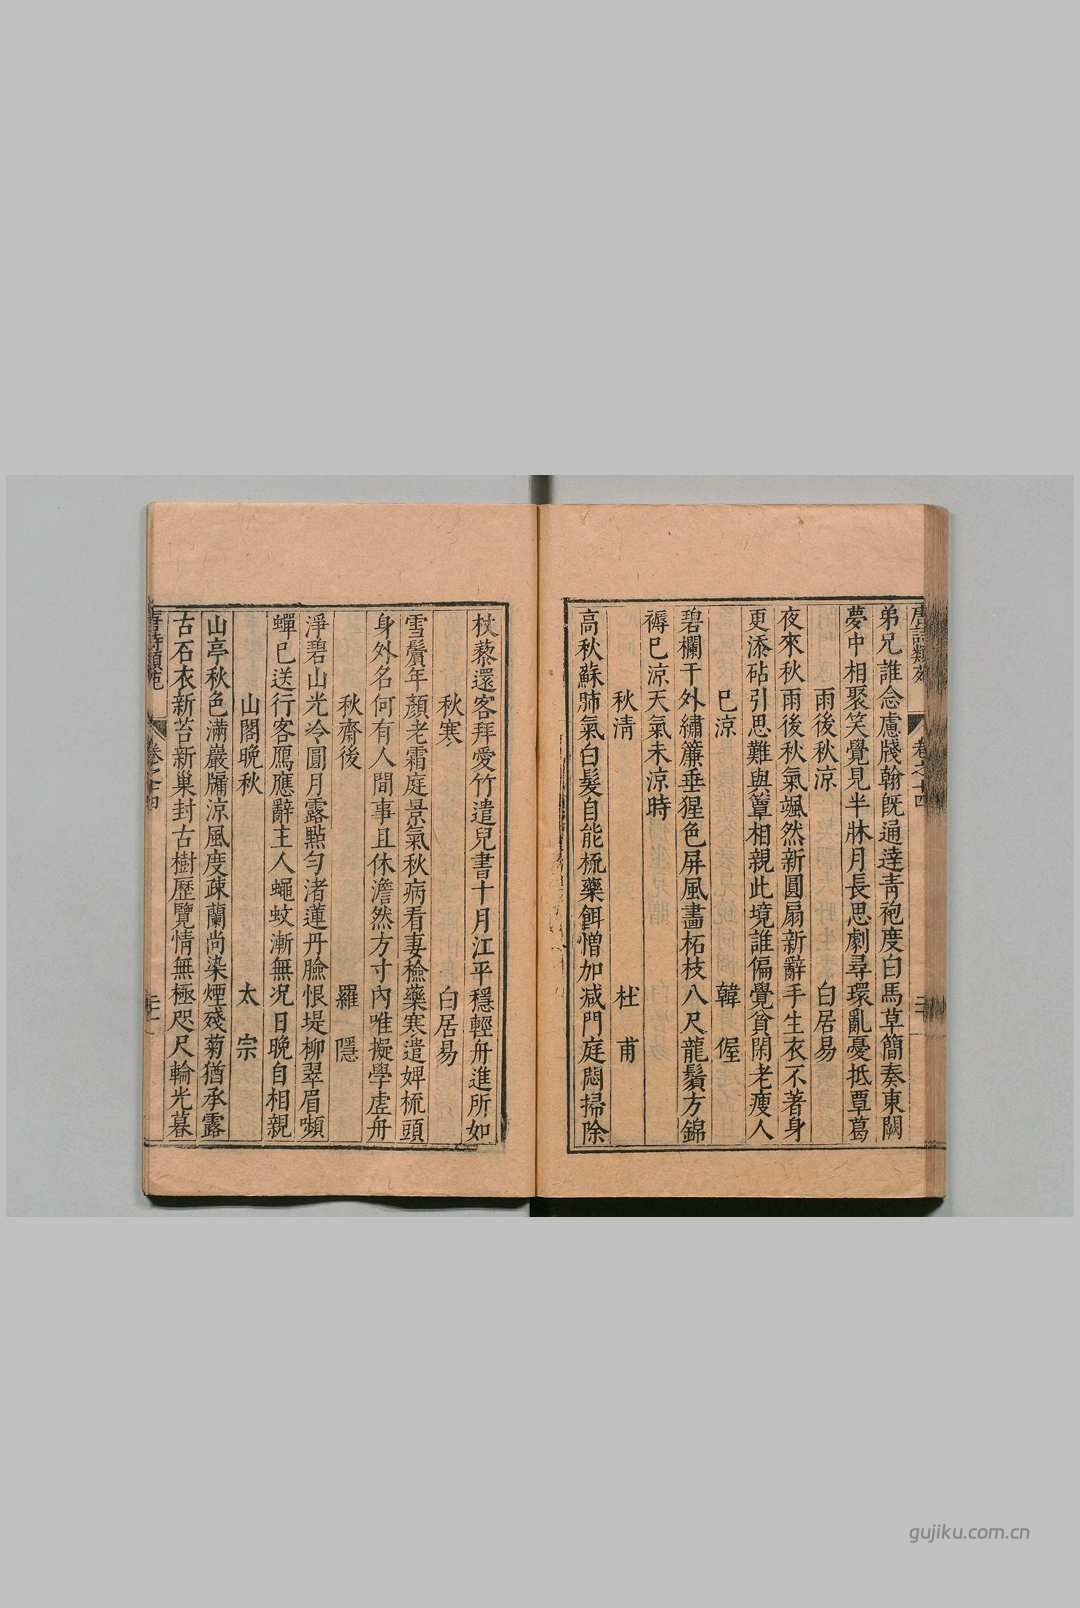 唐詩類苑 卷之十四
弟兄誰念慮牋翰旣通達靑袍度白馬草簡奏東闕
夢中相聚笑覺見半牀月長思劇尋環亂憂抵覃葛
雨後秋涼 白居易
夜來秋雨後秋氣颯然新圓扇新辭手生衣不著身
更添砧引思難與簟相親此境誰偏覺貧閑老瘦人
已涼 韓偓
碧欄干外繡簾垂猩色屏風畫柘枝八尺龍鬚方錦
褥已涼天氣未涼時
秋淸 杜甫
高秋蘇肺氣白髮自能梳藥餌憎加减門庭悶掃除
杖藜還客拜愛竹遣兒書十月江平穩輕舟進所如
秋寒 白居易
雪鬢年顏老霜庭景氣秋病看妻撿藥寒遣婢梳頭
身外名何有人間事且休澹然方寸內唯擬學虛舟
秋齋後 羅隱
淨碧山光冷圓月露㸃勻渚蓮丹臉恨堤柳翠眉嚬
蟬已送行客鴈應辭主人蠅蚊漸無况日晚自相親
山閣晚秋 太宗
山亭秋色滿巖牖涼風度疎蘭尚染煙殘菊猶承露
古石衣新苔新巢封古樹歷覽情無極咫尺輪光暮
唐詩類苑 卷之十四
gujiku.com.cn